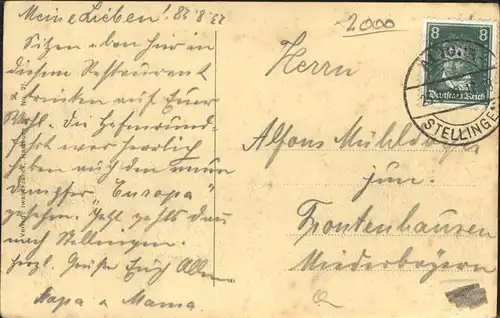 Meine Lieben! 23.8.28
Sitzen eben hier in
diesem Restaurant
& trinken auf Euer
Wohl. Die Hafenrund-
fahrt war herrlich
haben auch den neuen
Dampfer „Europa"
gesehen. Jetzt gehts dann
nach Stellingen.
Herzl. Grüße Euch Allen
Papa & Mama
2000
Herrn
Alfons Mühldorfer
jun.
Frontenhausen
Niederbayern
8 8
Deutsches Reich
STELLINGE
Verlag:
No. 21